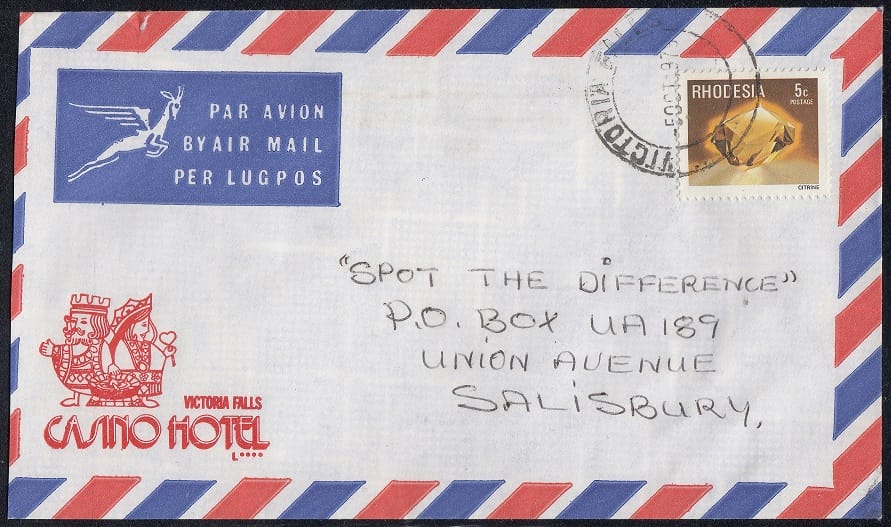 PAR AVION
BY AIR MAIL
PER LUGPOS
VICTORIA FALLS
5 OCT 197
RHODESIA 5c
POSTAGE
CITRINE
"SPOT THE DIFFERENCE"
P.O. BOX UA 189
UNION AVENUE
SALISBURY,
VICTORIA FALLS
CASINO HOTEL
L••••